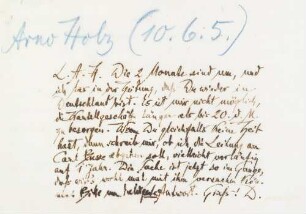 Arno Holz (10.6.5.)
L. A. H. Die 2 Monate sind um, und
ich las in der Zeitung, daß Du wieder in
Deutschland bist. Es ist mir nicht möglich,
die länger als bis 20. d. M.
zu besorgen. Wenn Du gleichfalls keine Zeit
hast, dann schreib mir, ob ich die Zeitung an
Carl abgeben soll, vielleicht vorläufig
auf 1 Jahr. Die Sache ist jetzt so im Gange,
daß es wohl mal mit ihm
Bitte um Antwort. Gruß: D.